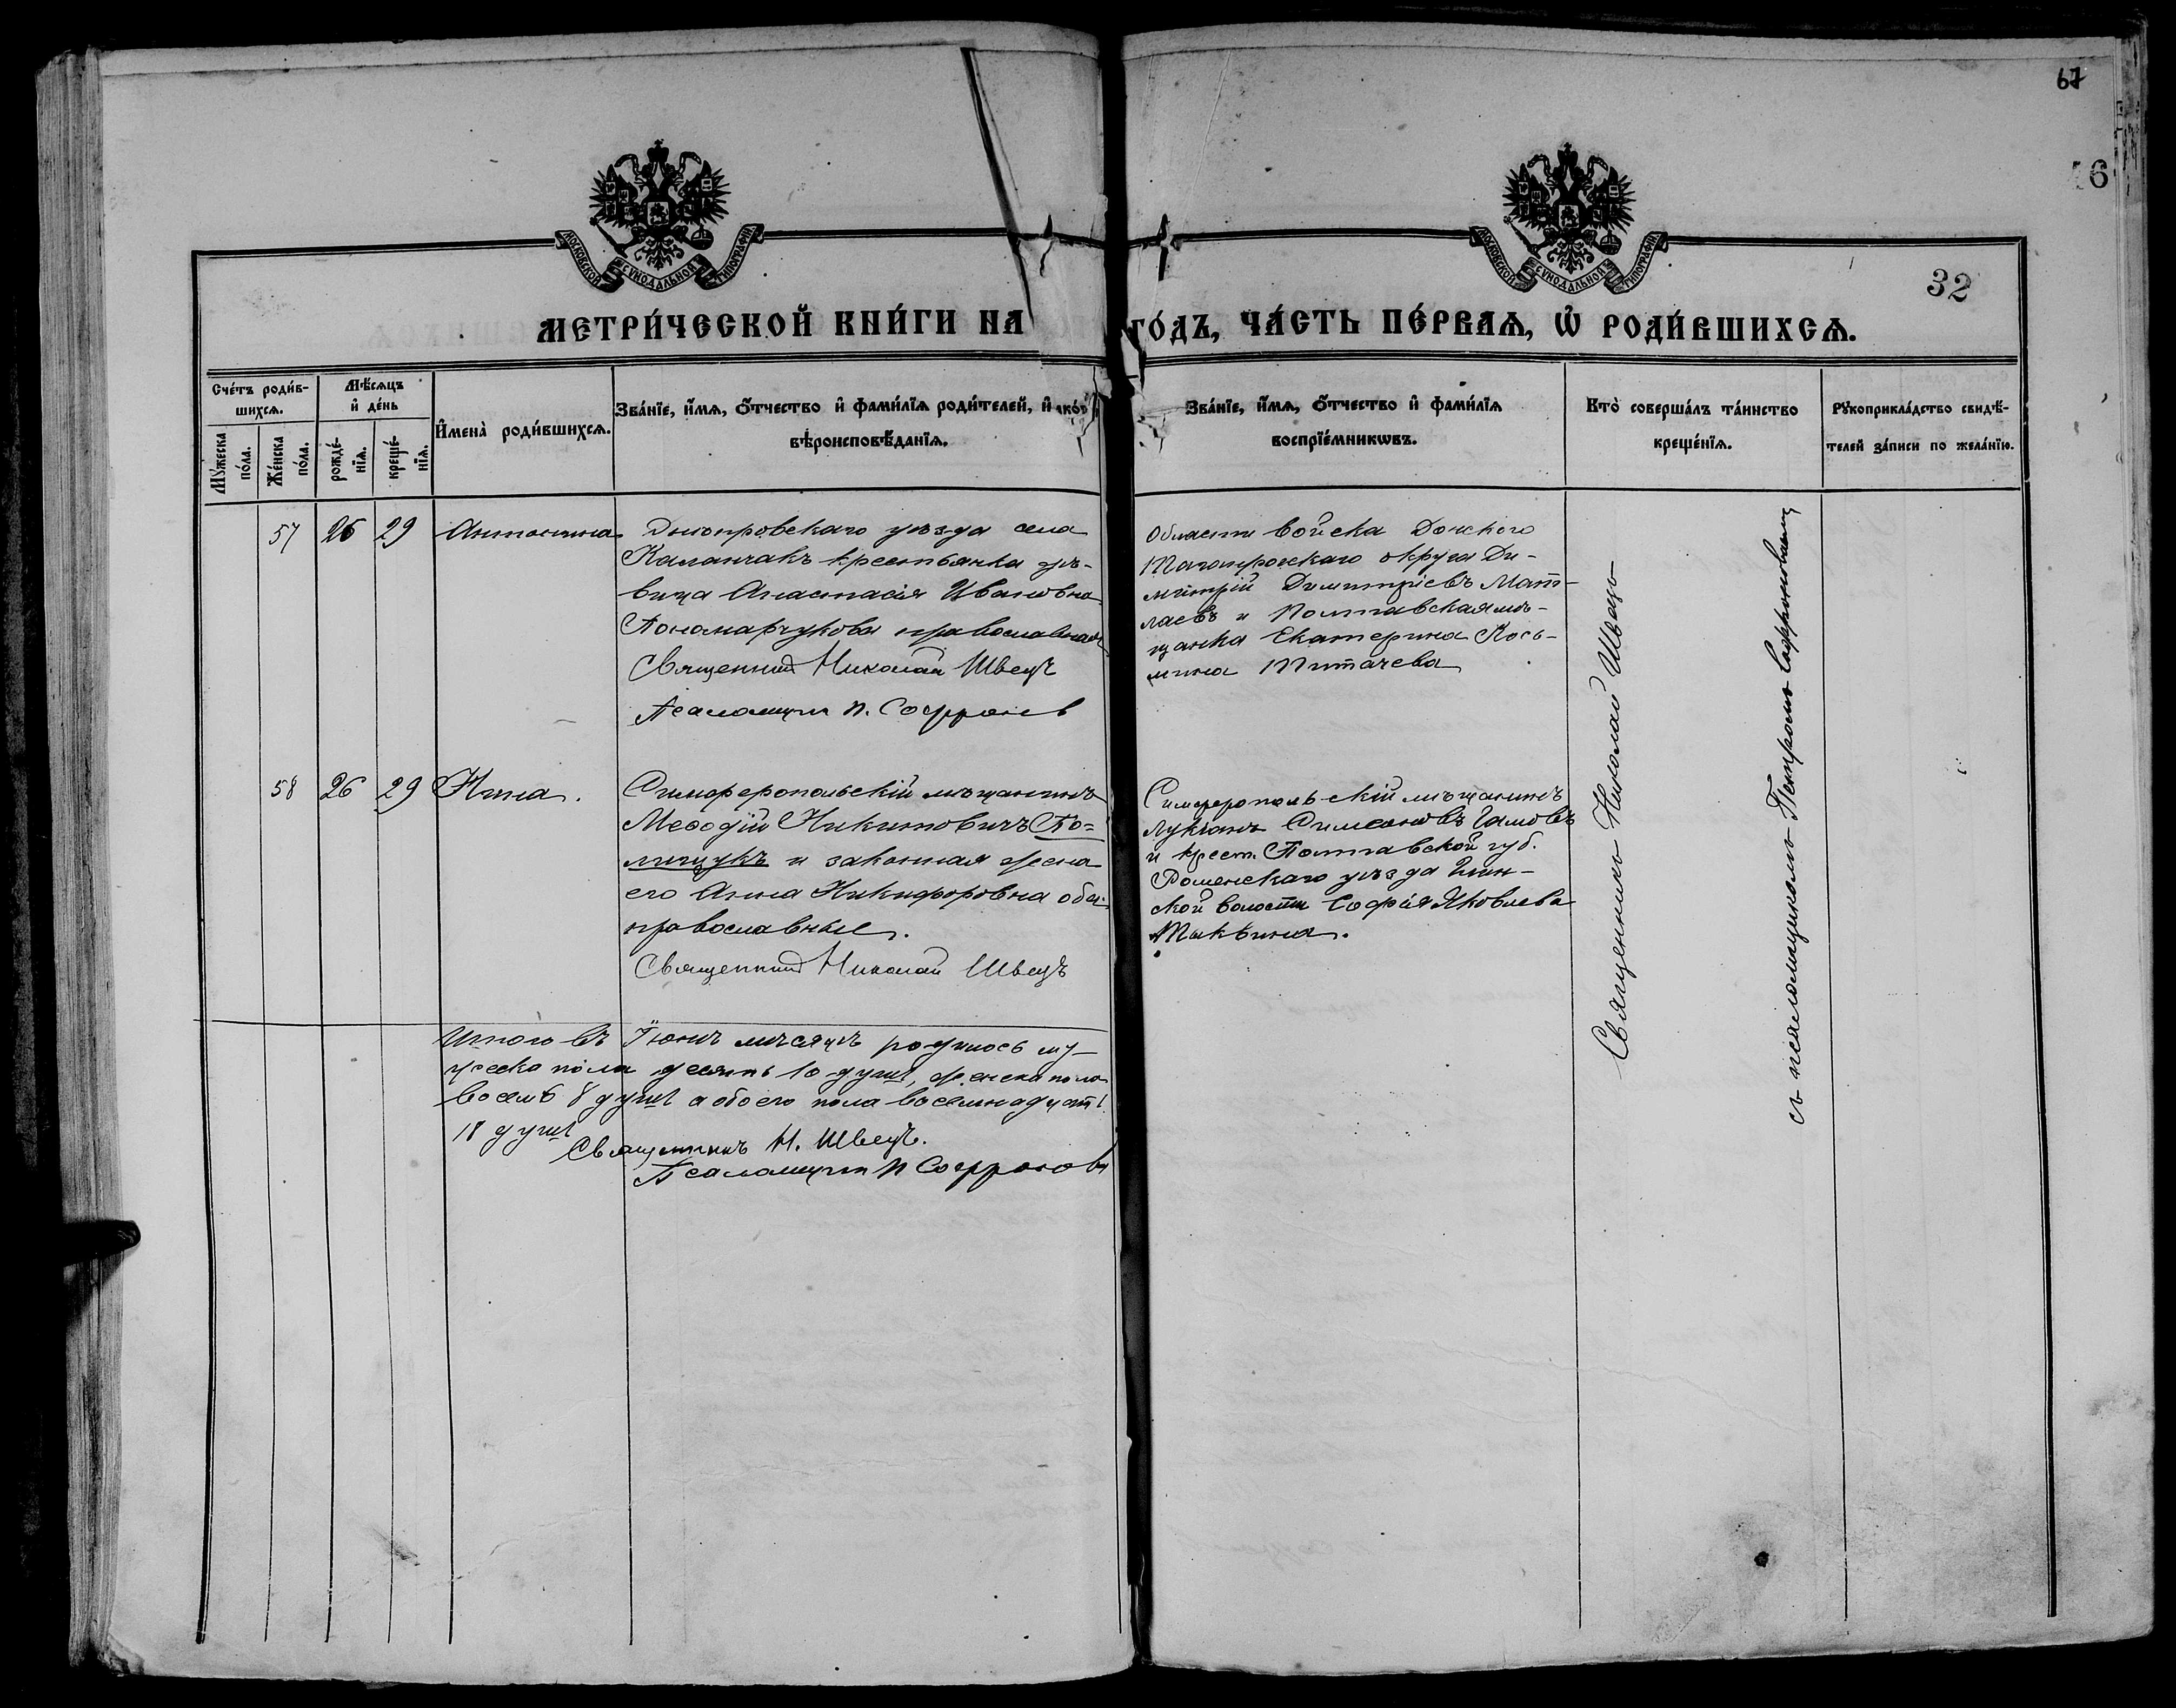 67
6
МОСКОВСКОЙ СѴНОДАЛЬНОЙ ТИПОГРАФІИ
МОСКОВСКОЙ СѴНОДАЛЬНОЙ ТИПОГРАФІИ
32
МЕТРИ́ЧЕСКОЙ КНИ́ГИ НА ГО́ДЪ, ЧА́СТЬ ПЕ́РВАѦ, Ѡ҆ РОДИ́ВШИХСѦ.
Сче́тъ роди́в-
шихсѧ.
Мѹ́жеска
по́ла.
Же́нска
по́ла.
Мѣ́сѧцъ
и҆ де́нь
рожде́-
нїѧ.
креще́-
нїѧ.
И҆мена̀ роди́вшихсѧ.
Зва́нїе, и҆́мѧ, ѻ҆́тчество и҆ фами́лїѧ роди́телей, и҆ како́
вѣроисповѣ́данїѧ.
Зва́нїе, и҆́мѧ, ѻ҆́тчество и҆ фами́лїѧ
воспрїе́мникѡвъ.
Кто̀ соверша́лъ та́инство
креще́нїѧ.
Рѹкоприкла́дство свидѣ́-
телей за́писи по жела́нїю.
57 26 29 Антонина
Днѣпровскаго уѣзда села
Каланчакъ крестьянка дѣ-
вица Анастасія Ивановна
Пономарчукова православная
Священникъ Николай Швецъ
Псаломщикъ П. Софроновъ
Области войска Донского
Таганрогскаго округа Ди-
митрій Димитріевъ Мат-
лаевъ и Полтавская мѣ-
щанка Екатерина Кось-
мина Титачева
58 26 29 Нина.
Симферопольскій мѣщанинъ
Меѳодій Никитовичъ По-
лищукъ и законная жена
его Анна Никифоровна оба
православные.
Священникъ Николай Швецъ
Симферопольскій мѣщанинъ
Лукіанъ Симеоновъ
и крест. Полтавской губ.
Роменскаго уѣзда Глин-
ской волости Софія Яковлева
Священникъ Николай Швецъ
съ псаломщикомъ Петромъ Софроновымъ
Итого въ Іюнѣ мѣсяцѣ родилось му-
жеска пола десять 10 душъ, женска пола
восемь 8 душъ а обоего пола восемнадцать
18 душъ
Священникъ Н. Швецъ.
Псаломщикъ П Софроновъ